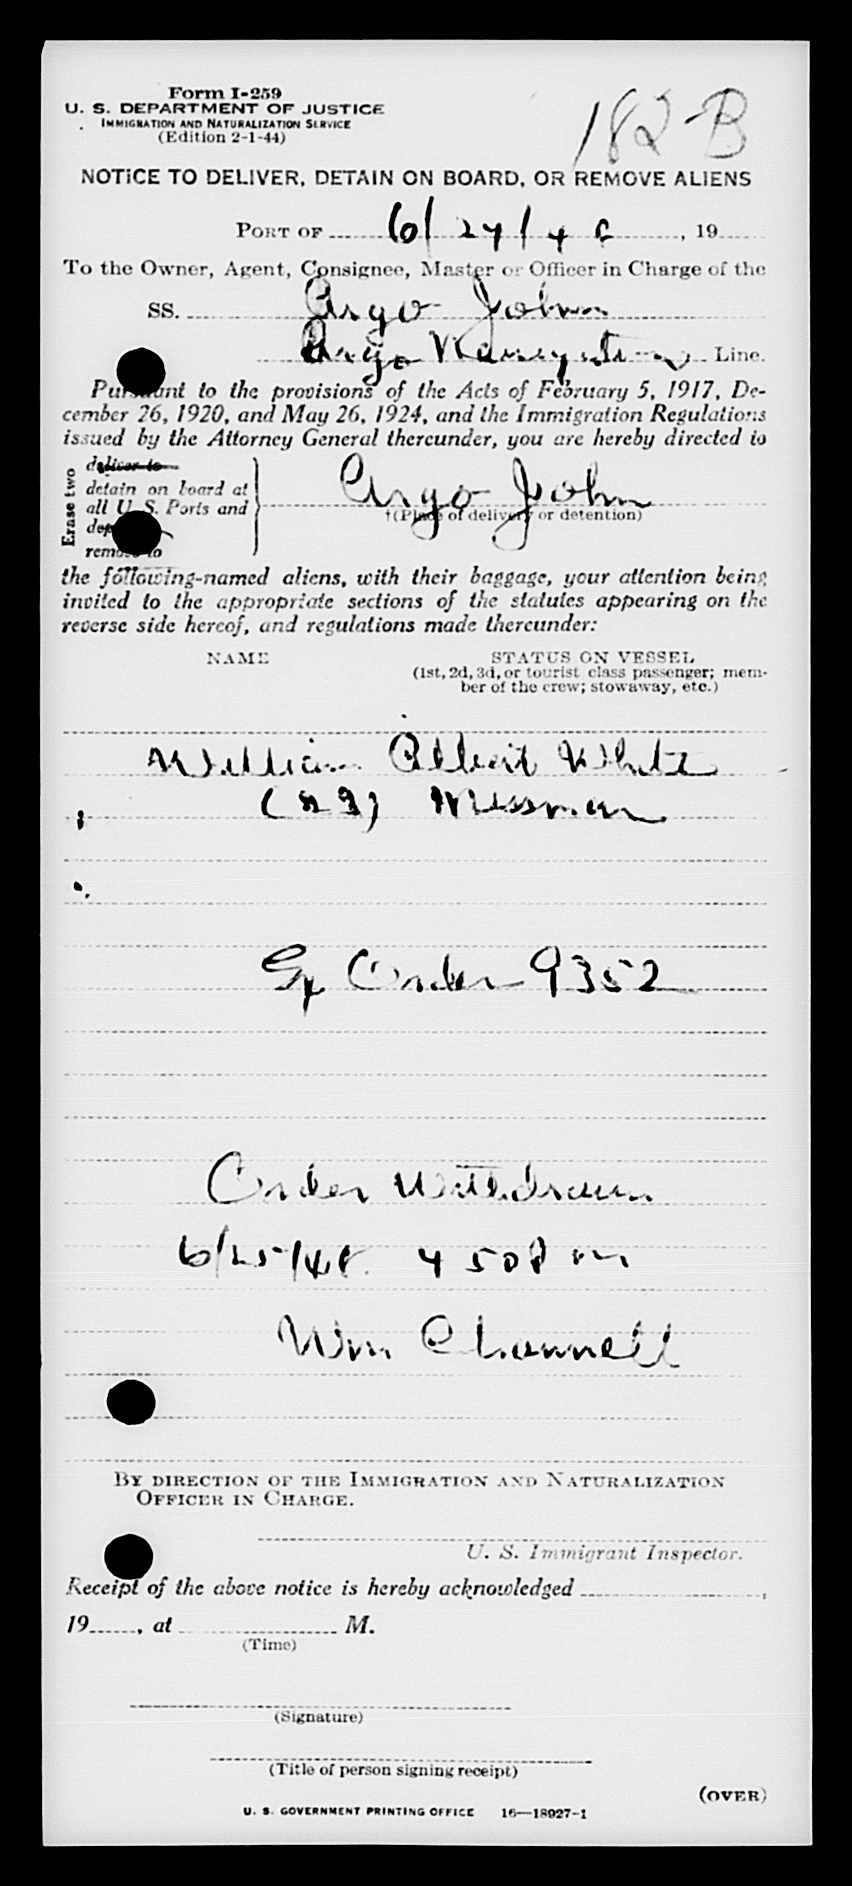 Form I-259
U. S. DEPARTMENT OF JUSTICE
IMMIGRATION AND NATURALIZATION SERVICE
(Edition 2-1-44)
182-B
NOTICE TO DELIVER, DETAIN ON BOARD, OR REMOVE ALIENS
PORT OF 6/24/48, 19
To the Owner, Agent, Consignee, Master or Officer in Charge of the
SS. Argo John
Argo Line.
Pursuant to the provisions of the Acts of February 5, 1917, De-
cember 26, 1920, and May 26, 1924, and the Immigration Regulations
issued by the Attorney General thereunder, you are hereby directed to
Erase two
deliver to
detain on board at
all U. S. Ports and
remove to
Argo John
†(Place of delivery or detention)
the following-named aliens, with their baggage, your attention being
invited to the appropriate sections of the statutes appearing on the
reverse side hereof, and regulations made thereunder:
NAME STATUS ON VESSEL
(1st, 2d, 3d, or tourist class passenger; mem-
ber of the crew; stowaway, etc.)
William Albert White
Messman
Ex Order 9352
Order Withdrawn
6/25/48. 4 50 P m
Wm Channell
BY DIRECTION OF THE IMMIGRATION AND NATURALIZATION
OFFICER IN CHARGE.
U. S. Immigrant Inspector.
Receipt of the above notice is hereby acknowledged ,
19 , at M.
(Time)
(Signature)
(Title of person signing receipt)
(OVER)
U. S. GOVERNMENT PRINTING OFFICE 16—18927-1